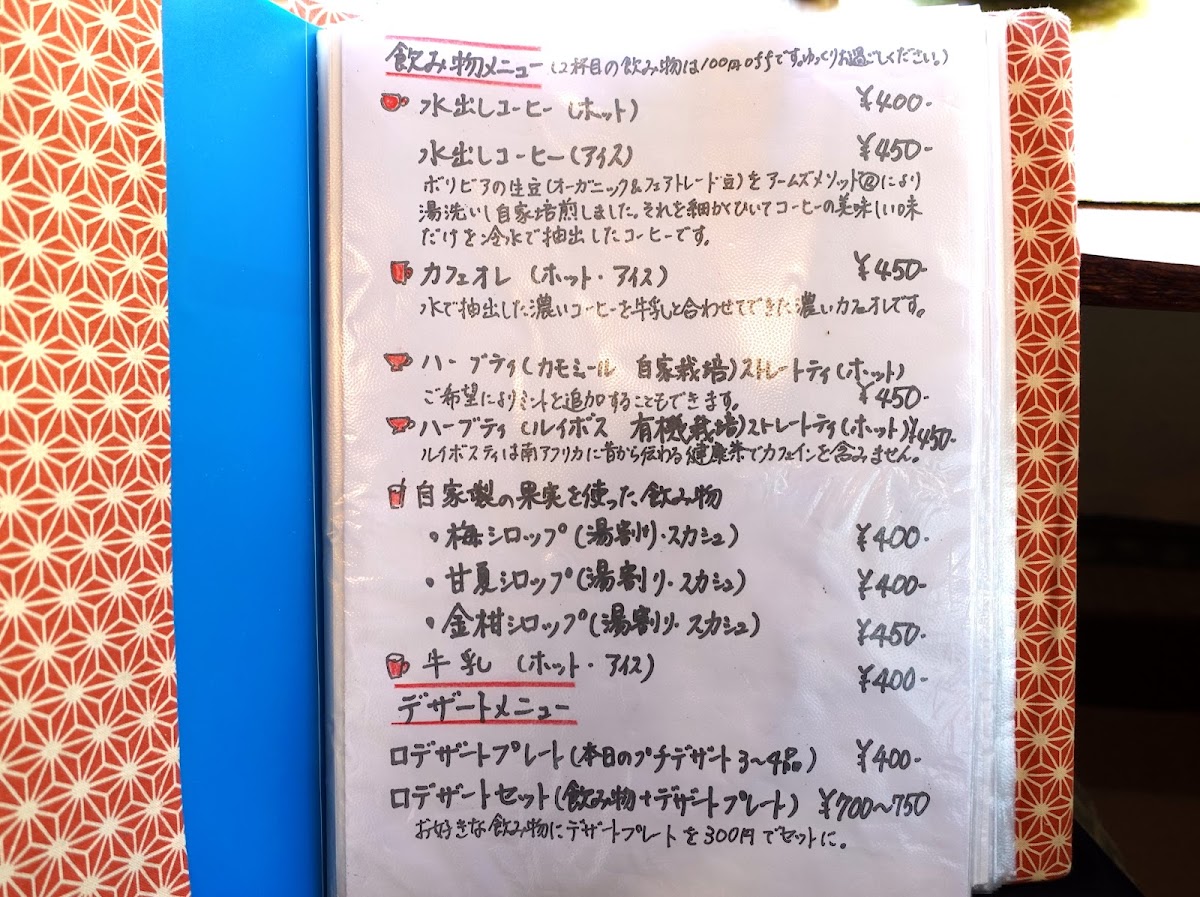 飲み物メニュー (2杯目の飲み物は100円offです。ゆっくりお過ごしください。)
水出しコーヒー (ホット) ¥400-
水出しコーヒー(アイス) ¥450-
ボリビアの生豆(オーガニック&フェアトレード豆)をアームズメソッド②により
湯洗いし自家培煎しました。それを細かくひいてコーヒーの美味しい味
だけを冷水で抽出したコーヒーです。
カフェオレ (ホット・アイス) ¥450-
水で抽出した濃いコーヒーを牛乳と合わせてできた濃いカフェオレです。
ハーブティ(カモミール 自家栽培)ストレートティ(ホット)
ご希望によりミントを追加することもできます。 ¥450-
ハーブティ(ルイボス 有機栽培)ストレートティ(ホット)¥450-
ルイボスティは南アフリカに昔から伝わる健康茶でカフェインを含みません。
自家製の果実を使った飲み物
・梅シロップ(湯割り・スカシュ) ¥400-
・甘夏シロップ(湯割り・スカシュ) ¥400-
・金柑シロップ(湯割り・スカシュ) ¥450-
牛乳 (ホット・アイス) ¥400-
デザートメニュー
□デザートプレート(本日のプチデザート3〜4品) ¥400-
□デザートセット(飲み物+デザートプレート) ¥700〜750
お好きな飲み物にデザートプレートを300円でセットに。